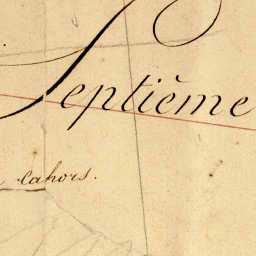 Septième
Cahors.